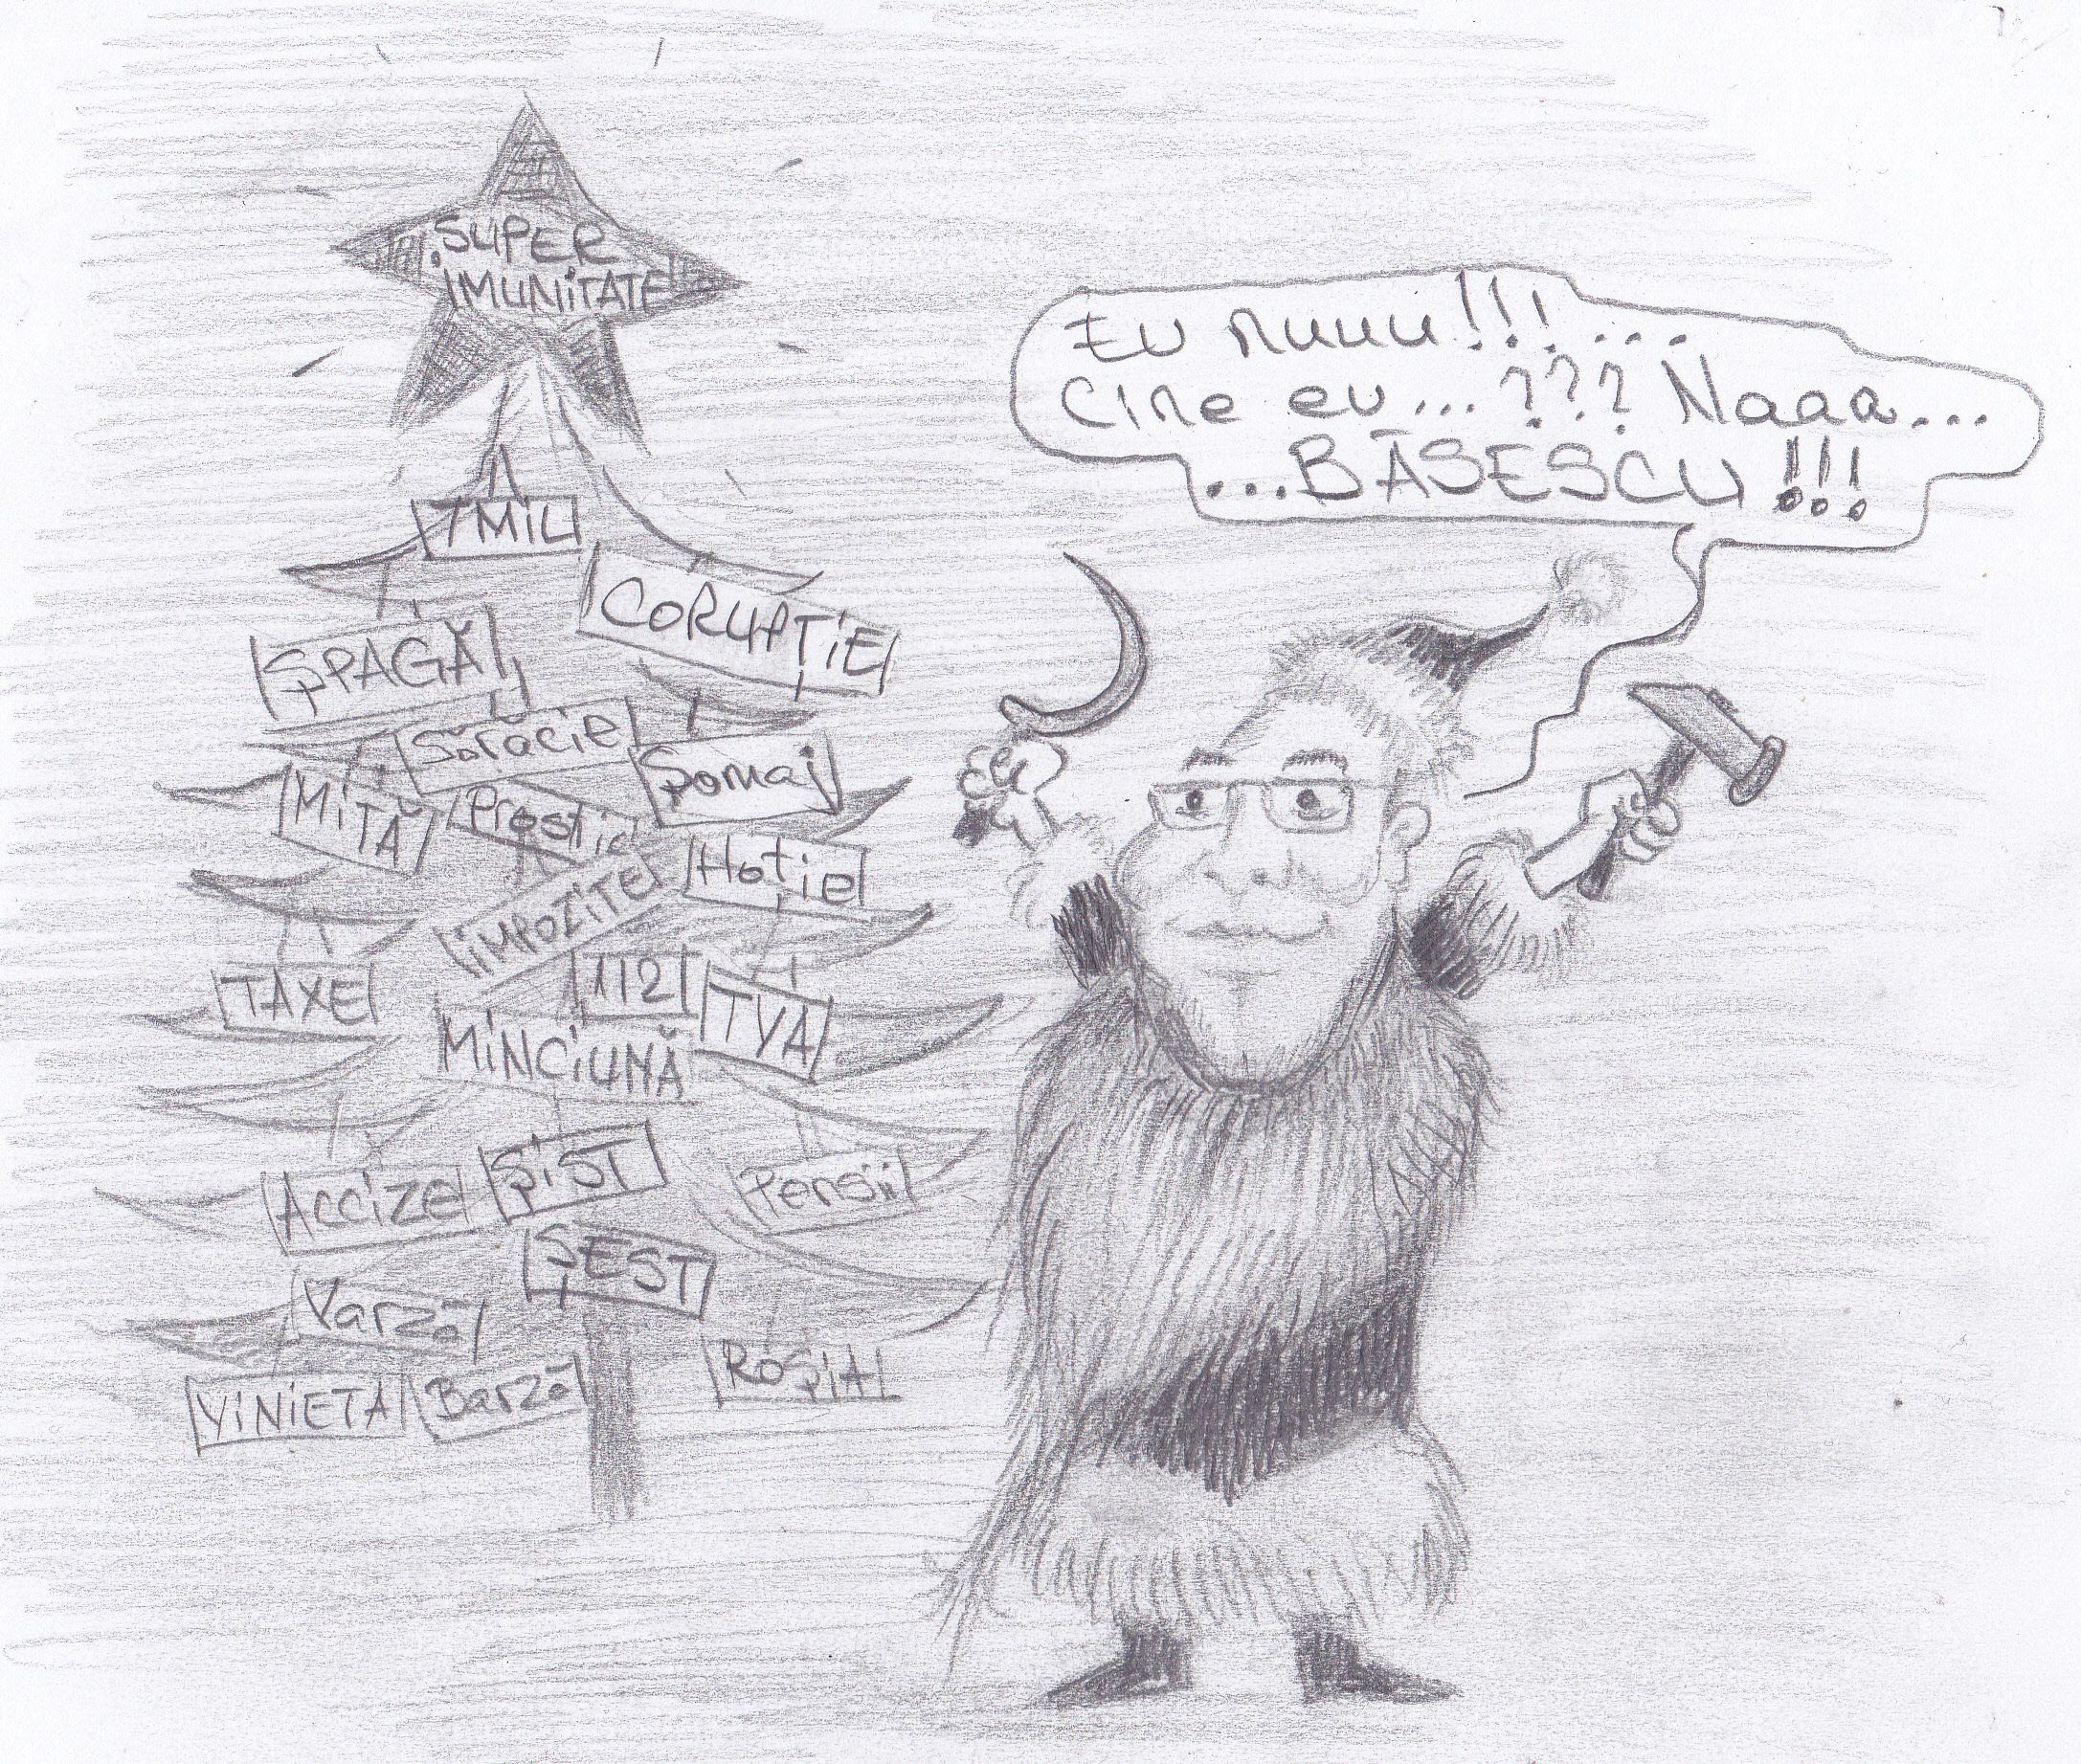 SUPER
IMUNITATE
7MIL
CORUPȚIE
ȘPAGĂ
Sărăcie
Șomaj
MITĂ
Prostie
Hoție
IMPOZITE
TAXE
112
TVA
MINCIUNĂ
Accize
ȘIST
Pensii
ȘEST
Varză
ROȘIA
VINIETA
Barză
Eu nuuu!!!...
Cine eu...??? Naaa...
...BĂSESCU!!!